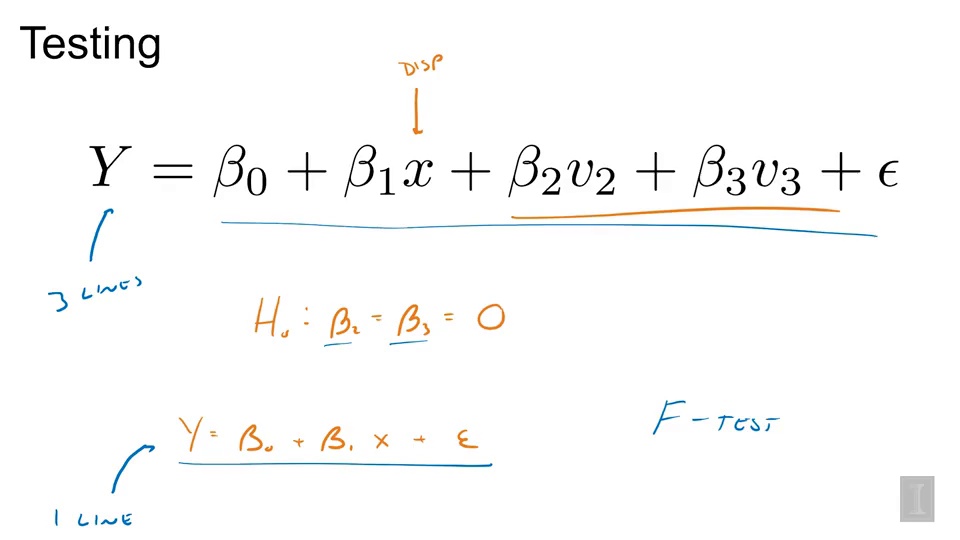 Testing
DISP
Y = β₀ + β₁x + β₂v₂ + β₃v₃ + ϵ
3 LINES
H₀ : β₂ = β₃ = 0
Y = β₀ + β₁ x + ε
F - TEST
1 LINE
I